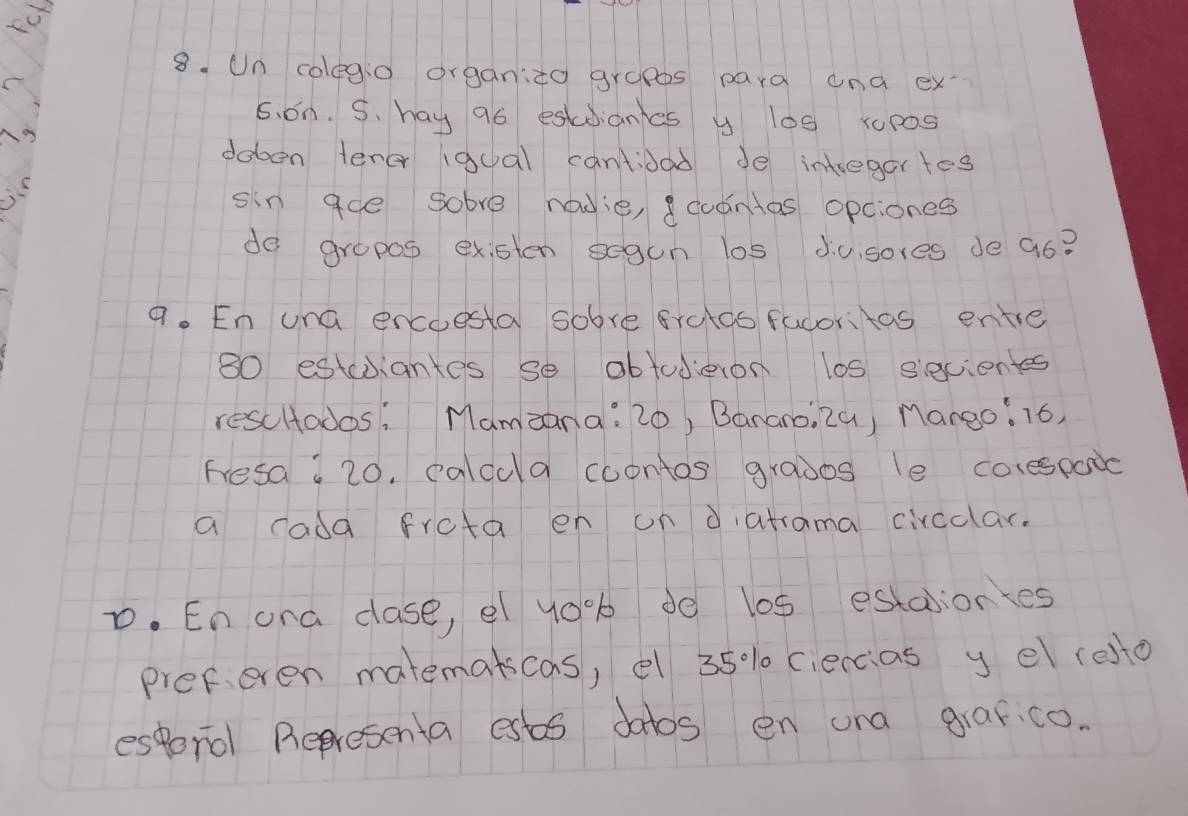 8. Un colegio organiza grupos para una ex
sión. Si hay 96 estudiantes y los rupos
deben tener igual cantidad de integartes
sin que sobre nadie, ¿cuántas opciones
de grupos existen segun los divisores de 96?
9. En una encuesta sobre frutas favoritas entre
80 estudiantes se obtudieron los siguientes
resultados: Mamzana: 20, Banano: 24, Mango: 16,
Fresa: 20. calcula cuontos grados le corespode
a cada fruta en un diatrama circular.
10. En una clase, el 40% de los estudiontes
prefieren matematicas, el 35% ciencias y el resto
español Representa estos datos en una grafico.